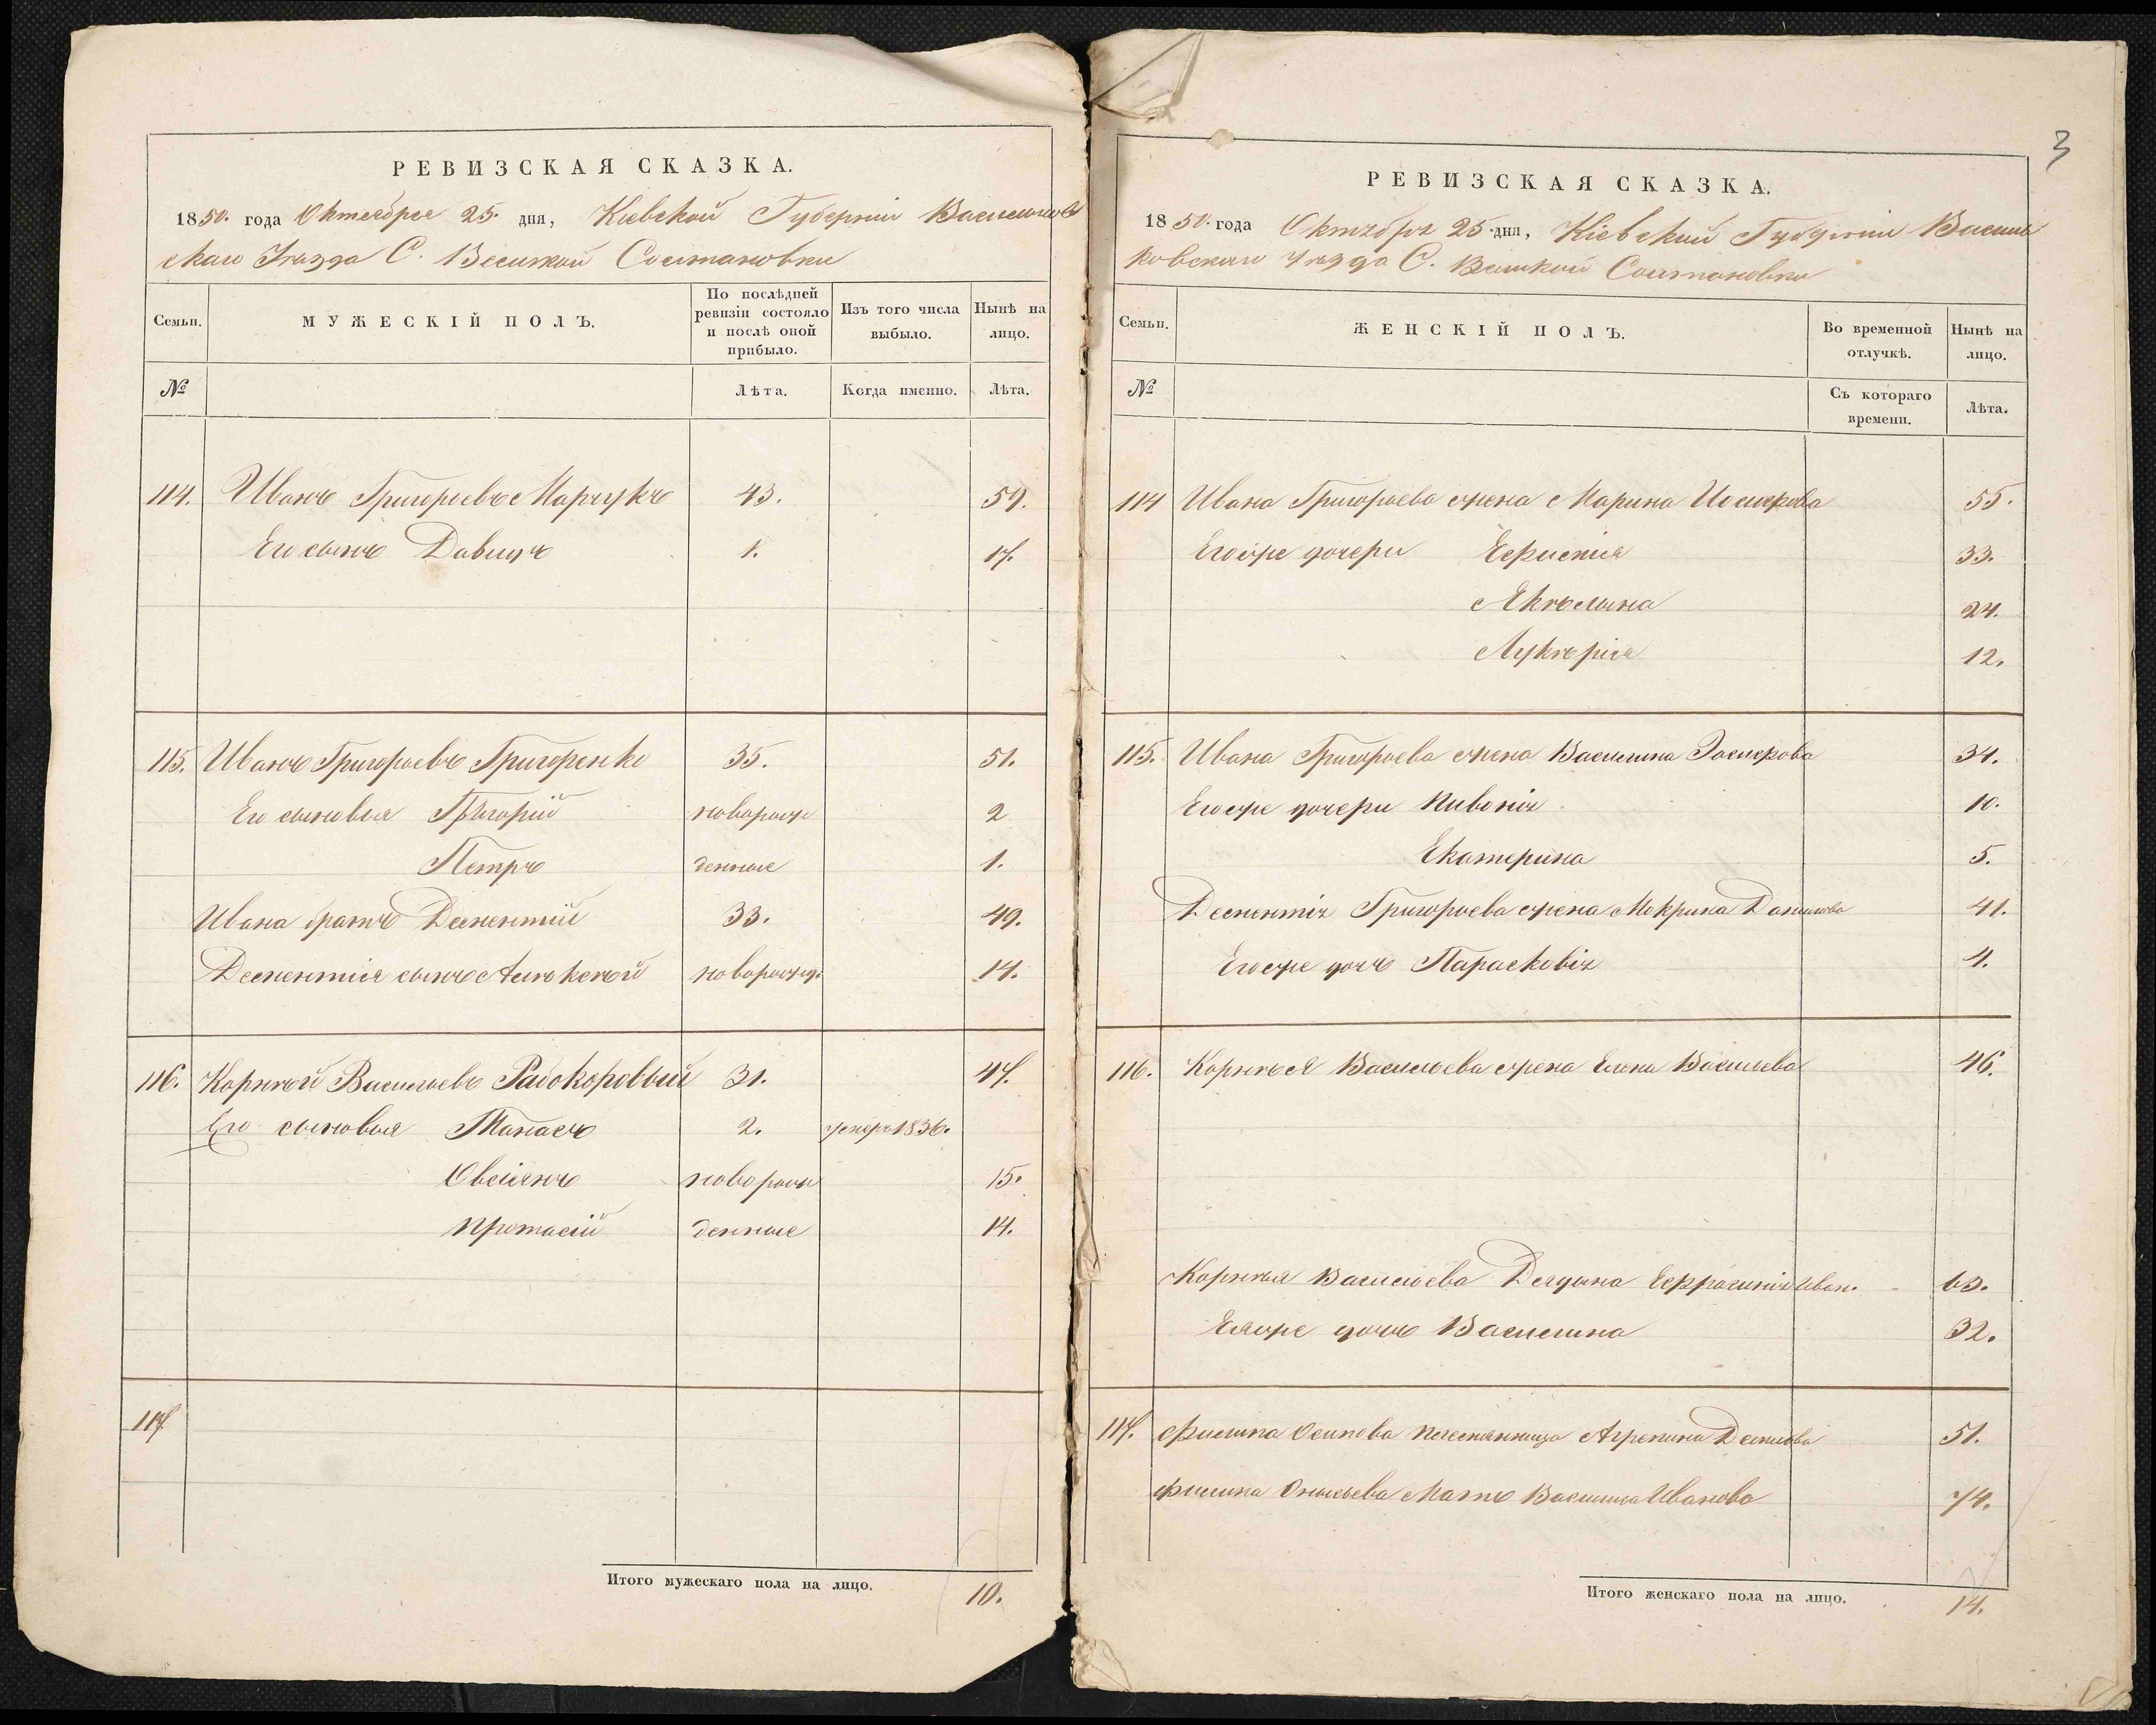 РЕВИЗСКАЯ СКАЗКА.
1850. года Октября 25. дня, Кіевской Губерніи Васильков
скаго Уѣзда С. Великой Солтановки
Семьи.
МУЖЕСКІЙ ПОЛЪ.
По послѣдней ревизіи состояло и послѣ оной прибыло.
Изъ того числа выбыло.
Нынѣ на лицо.
№
Лѣта.
Когда именно.
Лѣта.
114. Иванъ Григорьевъ Марчукъ 43. 59.
Его сынъ Давидъ 1. 17.
115. Иванъ Григорьевъ Григоренко 35. 51.
Его сыновья Григорій новорож 2
Петръ денные 1.
Ивана братъ Дементій 33. 49.
Дементія сынъ Алексѣй новорожд. 14.
116. Корнѣй Васильевъ Рабокоровый 31. 47.
Его сыновья Танасъ 2. умеръ 1836.
Овсіянъ новорож 15.
Протасій денные 14.
117
Итого мужескаго пола на лицо. 10.
3
РЕВИЗСКАЯ СКАЗКА.
1850. года Октября 25 дня, Кіевской Губерніи Василь
ковскаго Уѣзда С. Великой Солтановки
Семьи.
ЖЕНСКІЙ ПОЛЪ.
Во временной отлучкѣ.
Нынѣ на лицо.
№
Съ котораго времени.
Лѣта.
114 Ивана Григорьева жена Марина 55.
Егоже дочери 33.
Акѣлина 24.
Лукѣрія 12.
115. Ивана Григорьева жена Василина 34.
Егоже дочери 10.
Екатерина 5.
Дементія Григорьева жена Мокрина Данилова 41.
Егоже дочь Парасковія 4.
116. Корнѣя Васильева жена Елена Васильева 46.
Корнѣя Васильева Иван. 63.
Еяже дочь Василина 32.
117. Филипа Осипова племянница Агрепина 51.
Филипа мать Василиса Иванова 74.
Итого женскаго пола на лицо. 14.